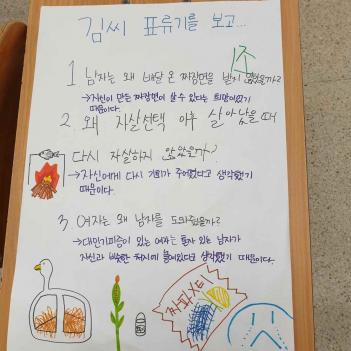 김씨 표류기를 보고...
조
1 남자는 왜 배달 온 짜장면을 받지 않았을까?
→자신이 만든 짜장면이 살 수 있다는 희망이였기
때문이다.
2. 왜 자살선택 이후 살아났을 때
다시 자살하지 않았을까?
→자신에게 다시 기회가 주어졌다고 생각했기
때문이다.
3 여자는 왜 남자를 도와줬을까?
→대인기피증이 있는 여자는 혼자 있는 남자가
자신과 비슷한 처지에 놓여있다고 생각했기 때문이다.
짜파게티